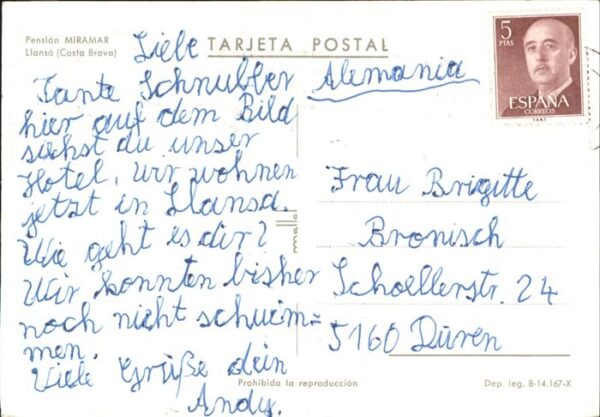 Pensión MIRAMAR
Llansá (Costa Brava)
TARJETA POSTAL
Liebe
Tante Schnubber
hier auf dem Bild
siehst du unser
Hotel, wir wohnen
jetzt in Llansa.
Wie geht es dir?
Wir konnten bisher
noch nicht schwim=
men.
Viele Grüße dein
Andy.
Alemania
5
PTAS
ESPAÑA
CORREOS
Frau Brigitte
Bronisch
Schoellerstr. 24
5160 Düren
Prohibida la reproducción
Dep. leg. B-14.167-X